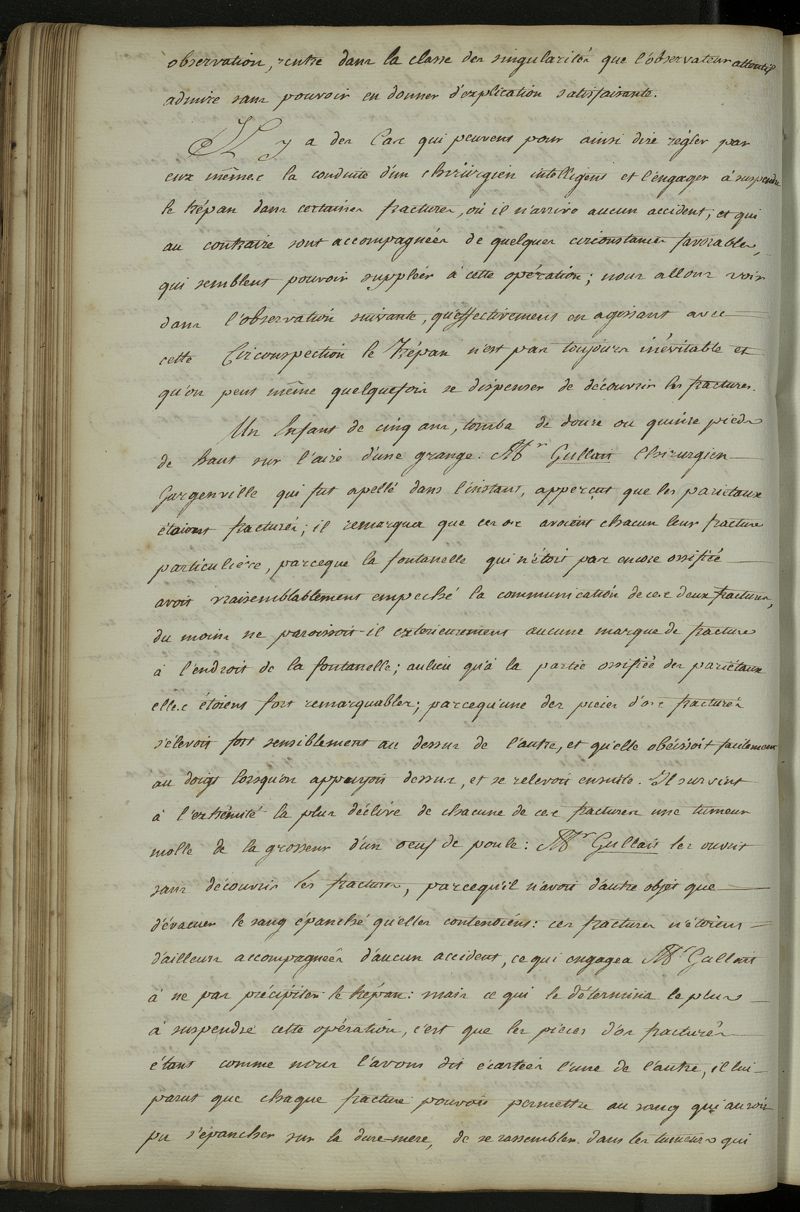 observation, rentre dans la classe des singularités que l'observateur attentif
admire sans pouvoir en donner d'explication satisfaisante.
Il y a des Cas qui peuvent pour ainsi dire régler par
eux mêmes la conduite d'un chirurgien intelligent et l'engager à suspendre
le trépan dans certaines fractures, où il n'arrive aucun accident; et qui
au contraire sont accompagnées de quelques circonstances favorables,
qui semblent pouvoir suppléer à cette opération; nous allons voir
dans l'observation suivante, qu'effectivement en agissant avec
cette Circonspection le Trépan n'est pas toujours inévitable et
qu'on peut même quelquefois se dispenser de découvrir les fractures.
Un Enfant de cinq ans, tomba de douze ou quinze pieds
de haut sur l'aire d'une grange. Mr Gullais Chirurgien
Gargenville qui fut apellé dans l'instant, apperçut que les parietaux
étaient fracturés; il remarqua que ces os avoient chacun leur fracture
particulière, parceque la fontanelle qui n'étoit pas encore ossifiée
avoit vraisemblablement empeché la communication de ces deux fractures,
du moins ne paroissoit-il exterieurement aucune marque de fracture
à l'endroit de la fontanelle; aulieu qu'à la partie ossifiée des pariétaux
elles étoient fort remarquables; parcequ'une des pieces d'os fracturés
s'élevoit fort sensiblement au dessus de l'autre, et qu'elle obéissoit facilement
au doigt lorsqu'on appuyoit dessus, et se relevoit ensuite. Il survint
à l'extrémité la plus déclive de chacune de ces fractures une tumeur
molle de la grosseur d'un oeuf de poule: Mr Gullais les ouvrit
sans découvrir les fractures, parcequ'il n'avoit d'autre objet que
d'évacuer le sang épanché qu'elles contenoient: ces fractures n'étoient
d'ailleurs accompagnées d'aucun accident, ce qui engagea Mr Gullais
à ne pas précipiter le trépan: mais ce qui le détermina le plus
à suspendre cette opération, c'est que les pieces d'os fracturés
étant comme nous l'avons dit écartées l'une de l'autre, il lui
parut que chaque fracture pouvoit permettre au sang qui auroit
pu s'épancher sur la dure-mere, de se rassembler dans les tumeurs qui